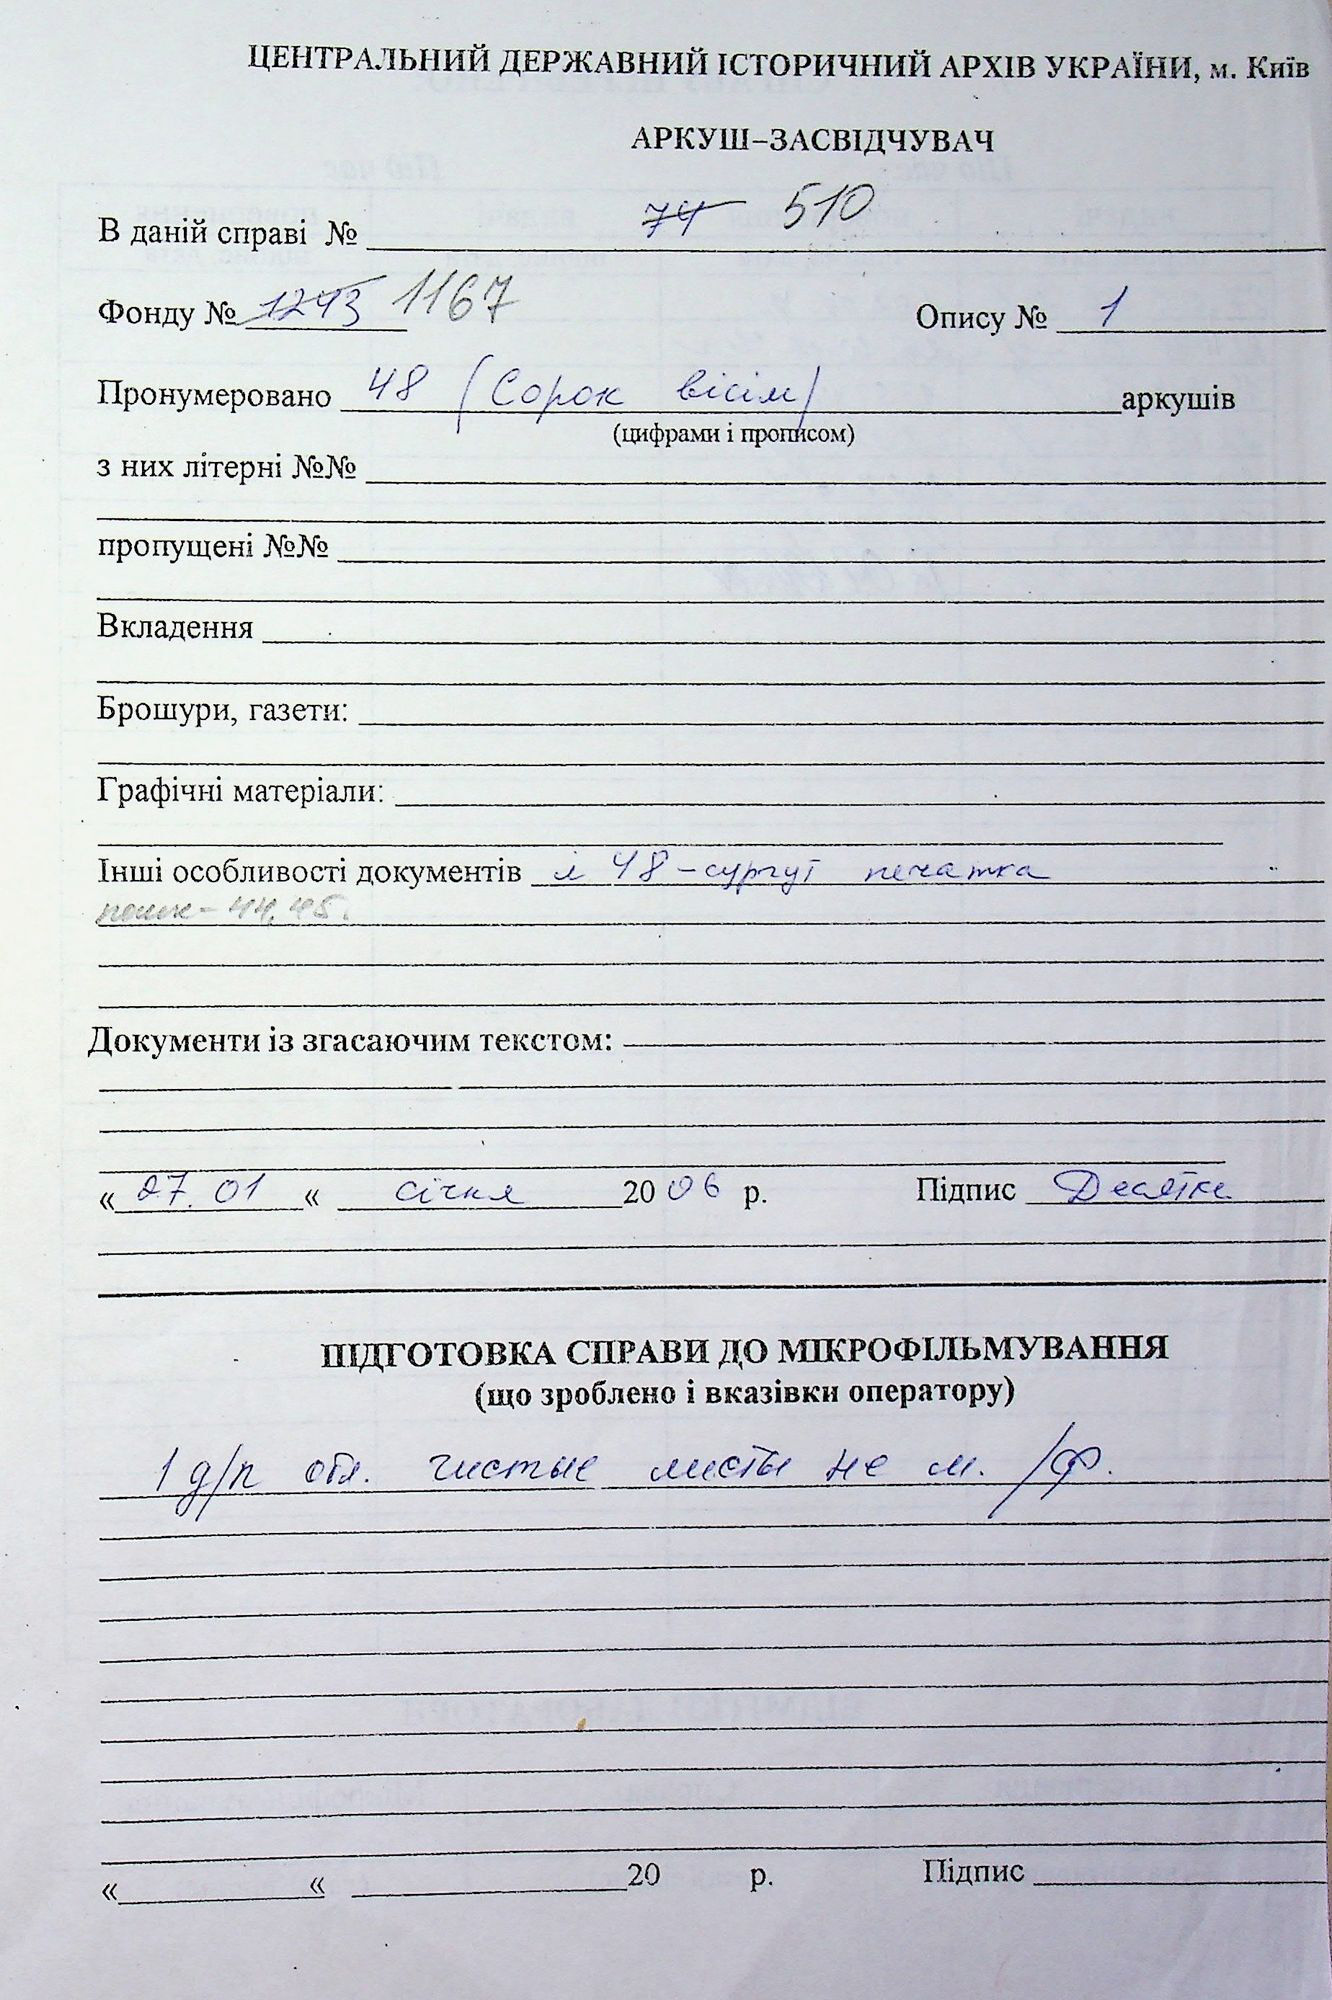 ЦЕНТРАЛЬНИЙ ДЕРЖАВНИЙ ІСТОРИЧНИЙ АРХІВ УКРАЇНИ, м. Київ
АРКУШ–ЗАСВІДЧУВАЧ
В даній справі № 74 510
Фонду № 1243 1167 Опису № 1
Пронумеровано 48 (Сорок вісім) аркушів
(цифрами і прописом)
з них літерні №№
пропущені №№
Вкладення
Брошури, газети:
Графічні матеріали:
Інші особливості документів л 48 – сургуч печатка
44, 45.
Документи із згасаючим текстом:
« 27.01 « січня 2006 р. Підпис
ПІДГОТОВКА СПРАВИ ДО МІКРОФІЛЬМУВАННЯ
(що зроблено і вказівки оператору)
1 д/п обл. чистые листы не м./ф.
« « 20 р. Підпис